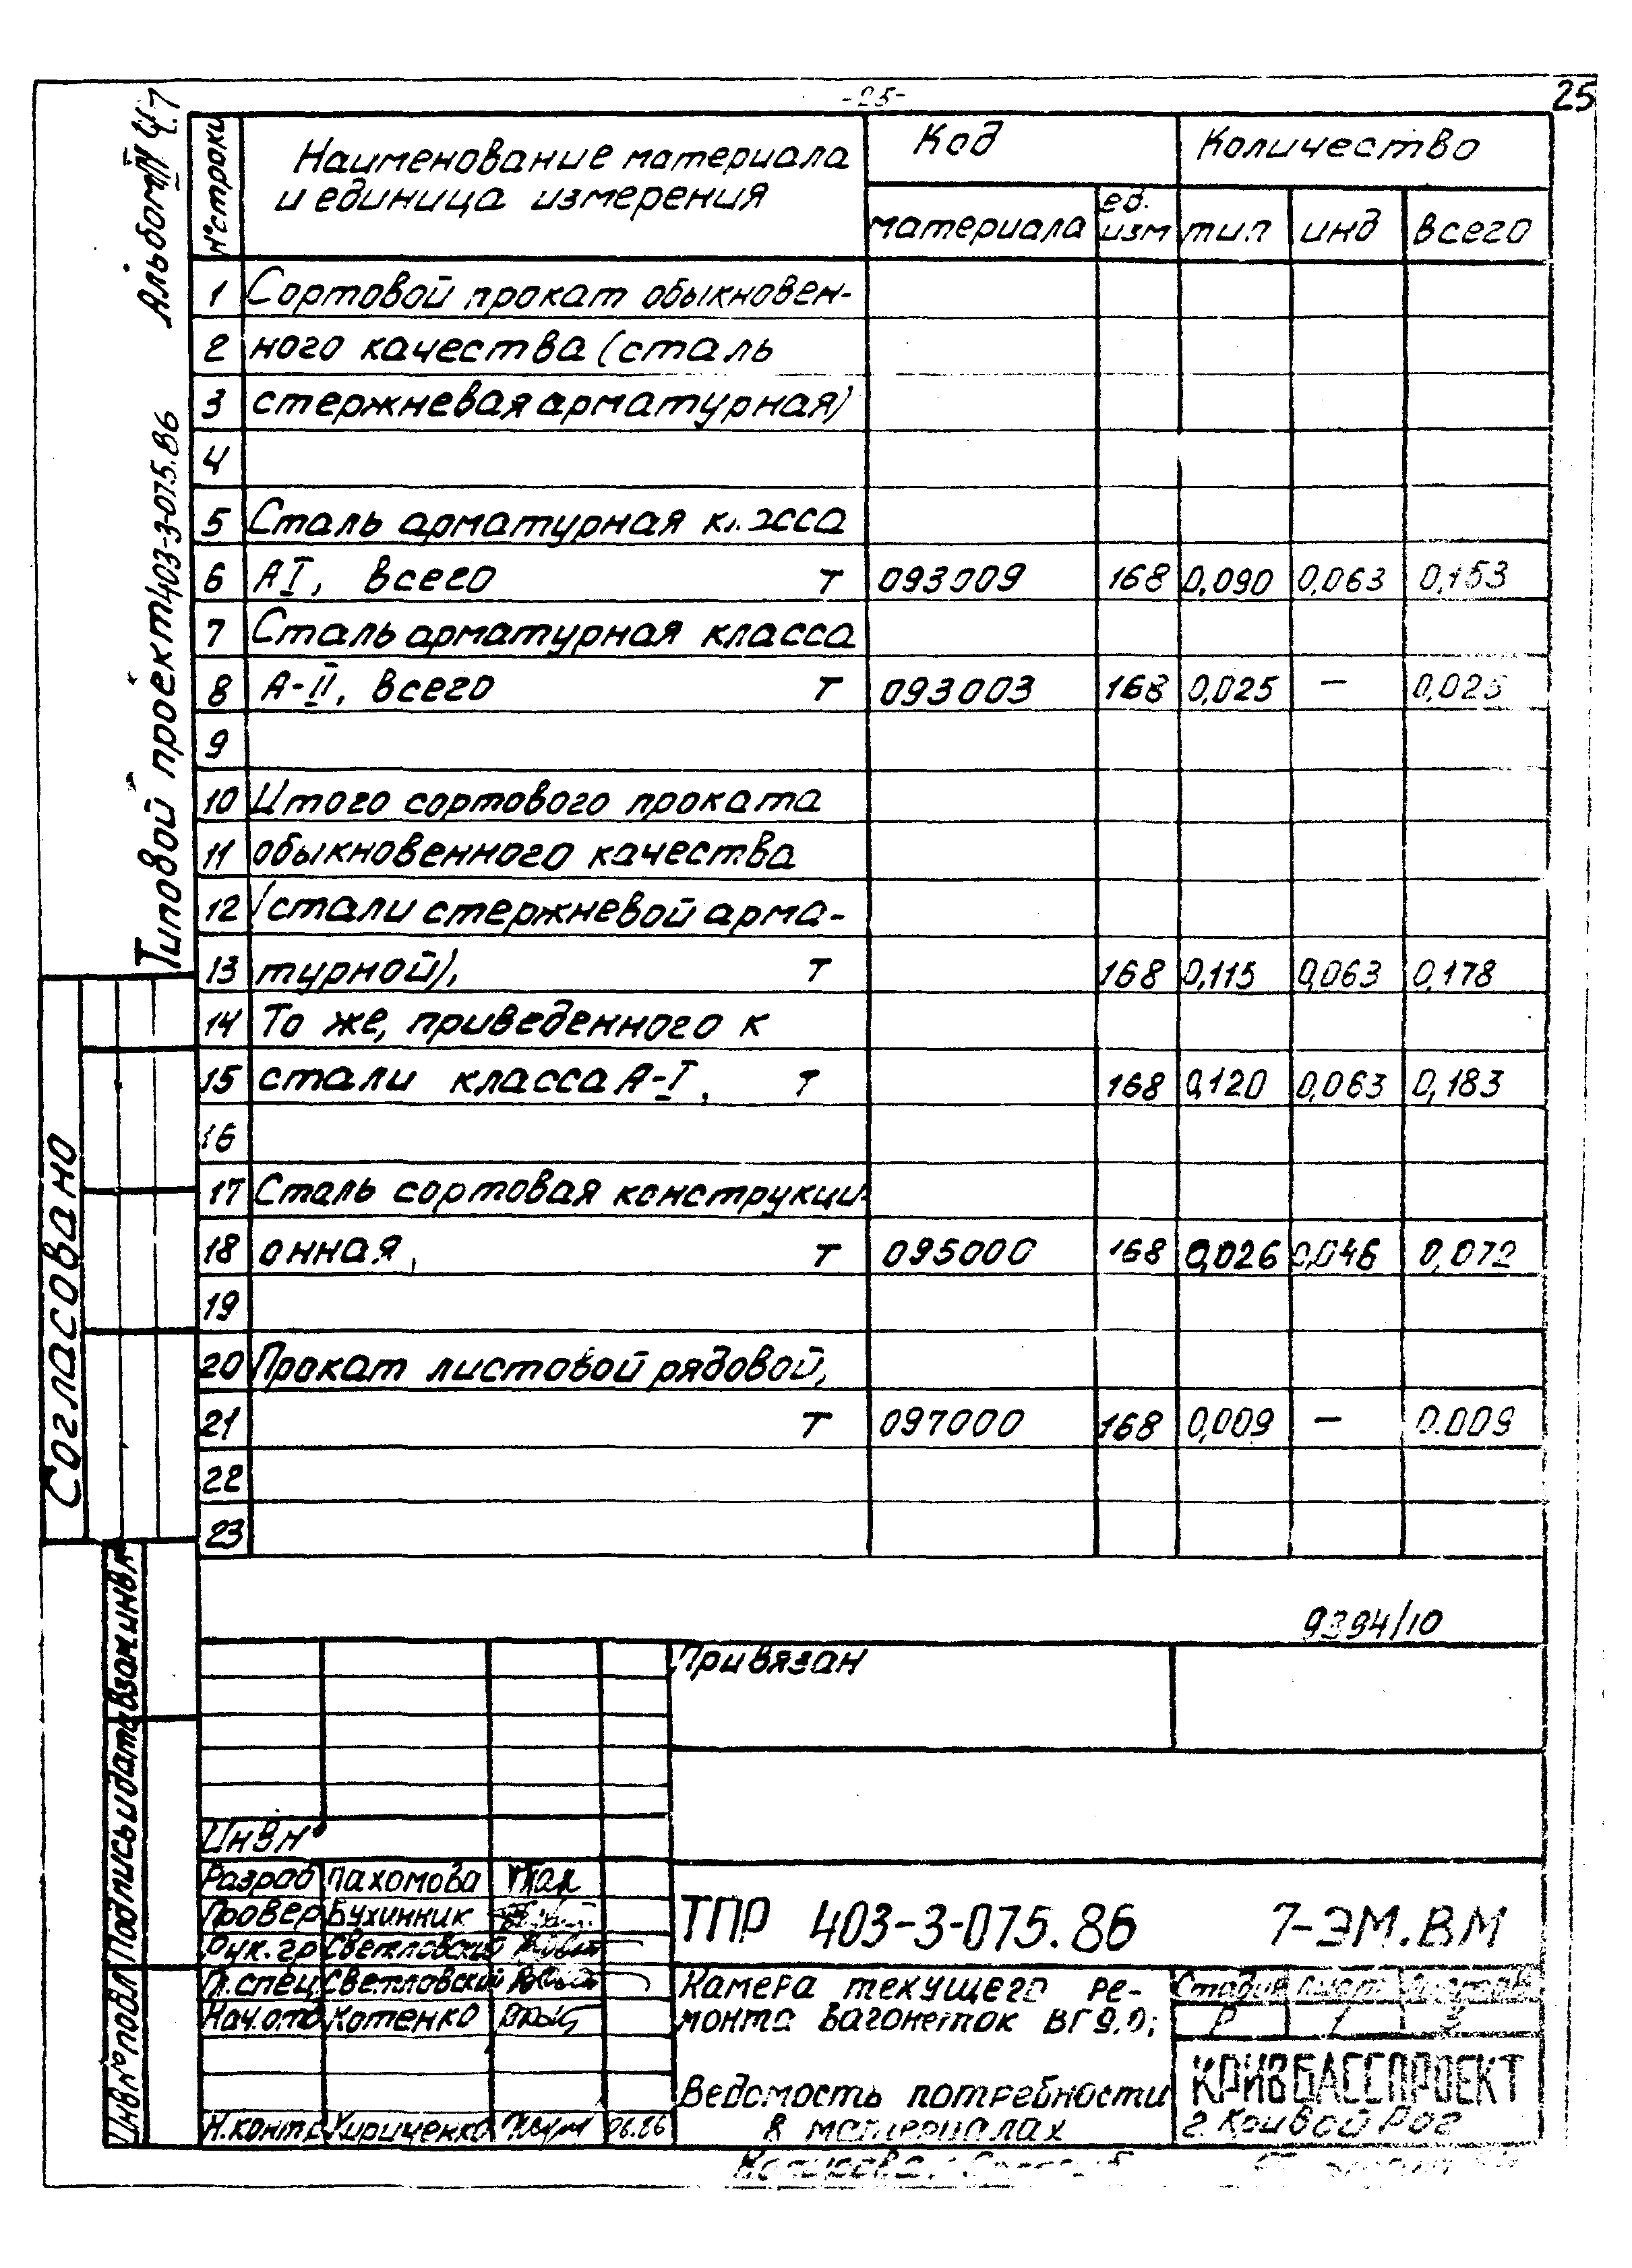 -25-
25
Альбом IV ч.7
Типовой проект 403-3-075.86
Согласовано
Инв.№ подл
Подпись и дата
Взам.инв.№
№ строки
Наименование материала
и единица измерения
Код
Количество
материала
ед.
изм
тип
инд
всего
1 Сортовой прокат обыкновен-
2 ного качества (сталь
3 стержневая арматурная)
4
5 Сталь арматурная класса
6 АI, всего т 093009 168 0,090 0,063 0,153
7 Сталь арматурная класса
8 А-II, всего т 093003 168 0,025 — 0,025
9
10 Итого сортового проката
11 обыкновенного качества
12 (стали стержневой арма-
13 турной), т 168 0,115 0,063 0,178
14 То же, приведенного к
15 стали класса А-I, т 168 0,120 0,063 0,183
16
17 Сталь сортовая конструкци-
18 онная, т 095000 168 0,026 0,046 0,072
19
20 Прокат листовой рядовой,
21 т 097000 168 0,009 — 0.009
22
23
9394/10
Привязан
Инв№
Разраб Пахомова
Провер Бухинник
Рук.гр Светловский
Гл.спец Светловский
Нач.отд Котенко
Н.контр Кириченко 06.86
ТПР 403-3-075.86 7-ЭМ.ВМ
Камера текущего ре-
монта вагонеток ВГ9.0;
Ведомость потребности
в материалах
Стадия Лист Листов
Р 1 3
КРИВБАССПРОЕКТ
г. Кривой Рог